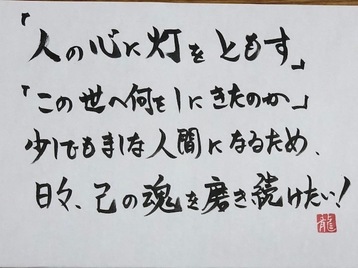 「人の心に灯をともす」
「この世へ何をしにきたのか」
少しでもましな人間になるため、
日々、己の魂を磨き続けたい!
龍